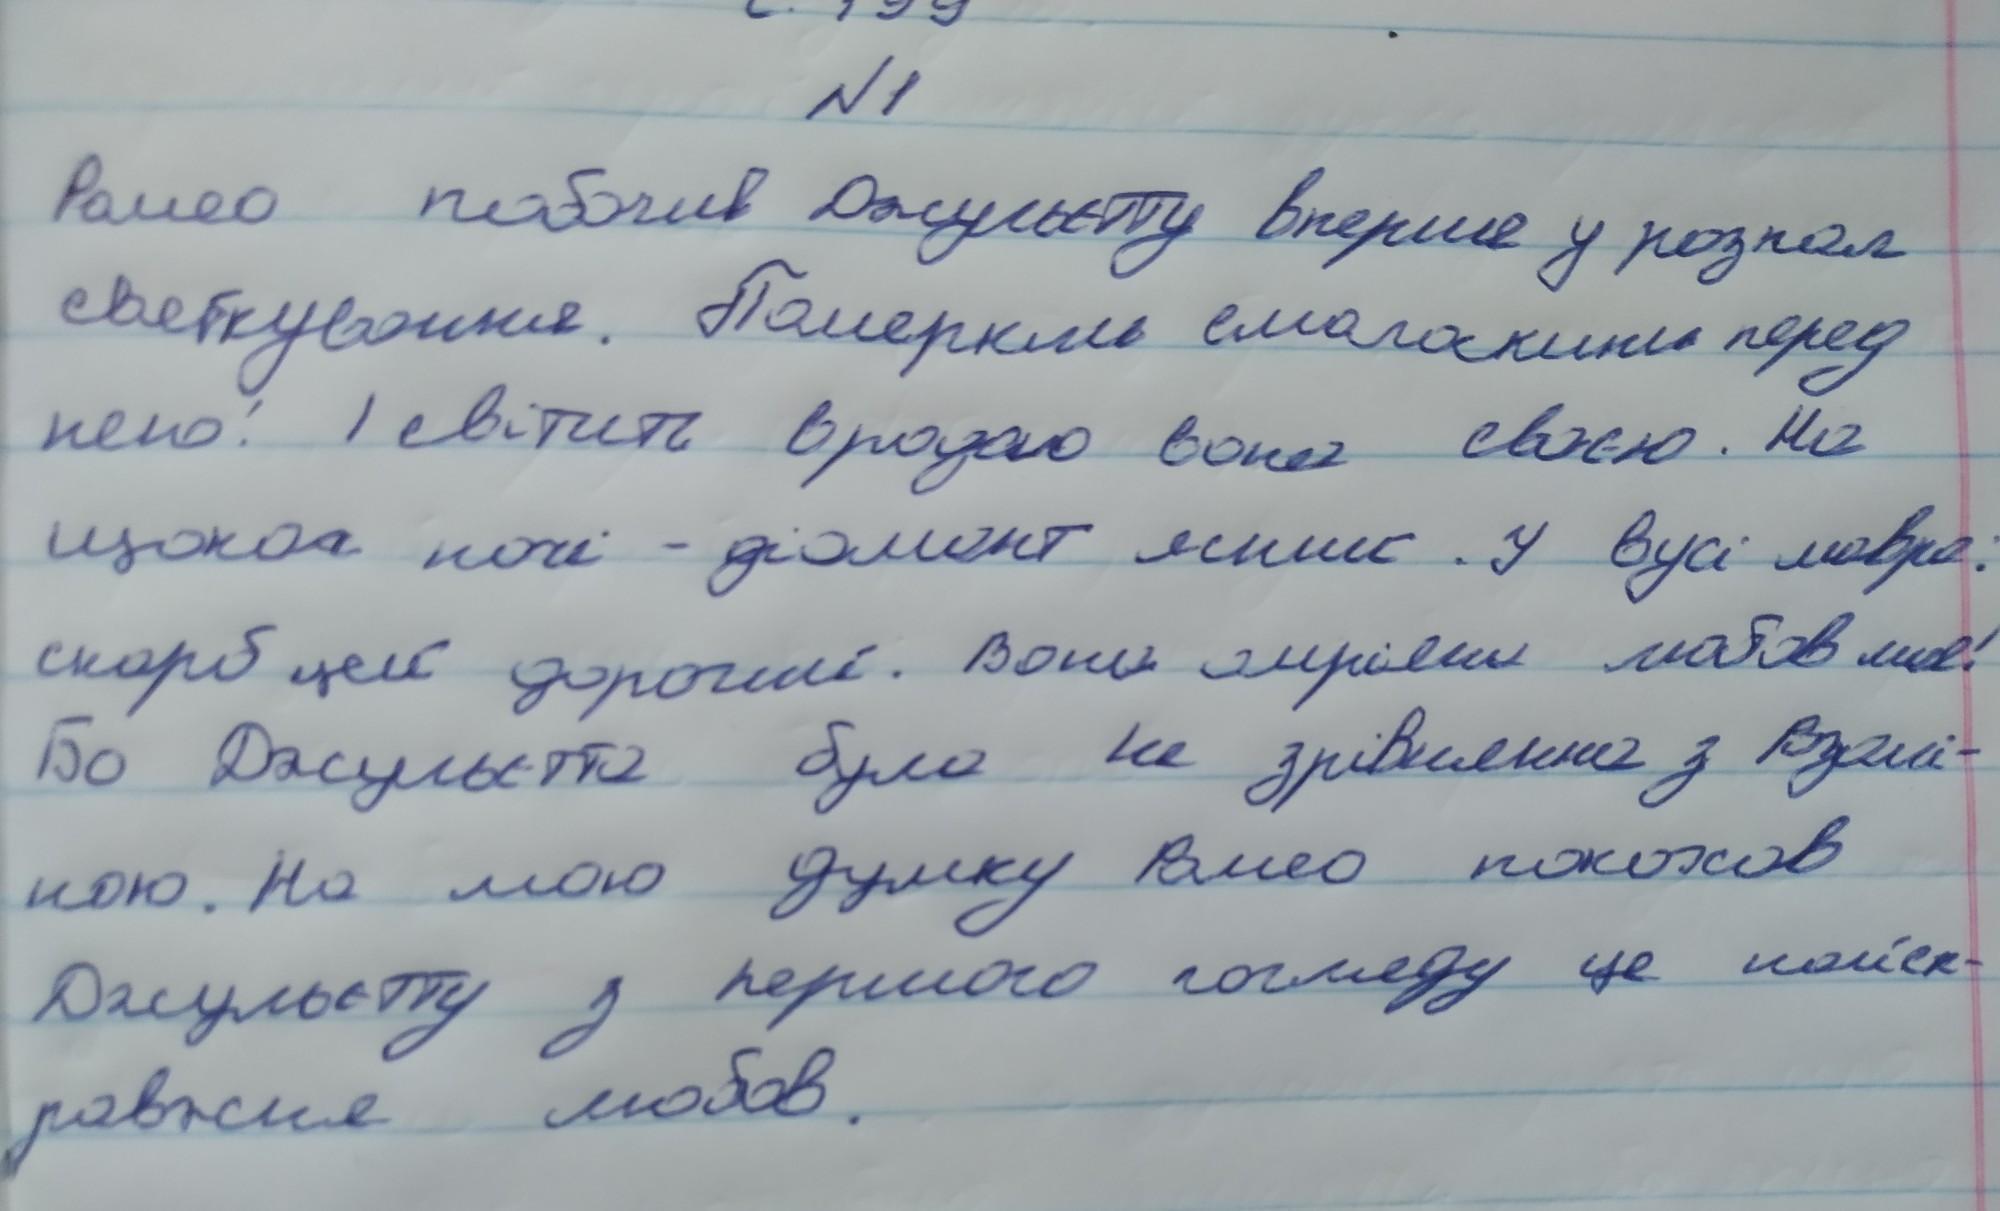 с. 199
№1
Ромео побачив Джульєтту вперше у розпал
святкування. Померкли смолоскипи перед
нею! І світить вродою вона своєю. На
щоках ночі - діамант ясний. У вусі мавра:
скарб цей дорогий. Вона омріяна любов моя!
Бо Джульєтта була не зрівнянна з Розалі-
ною. На мою думку Ромео покохав
Джульєтту з першого погляду це найск-
равжня любов.